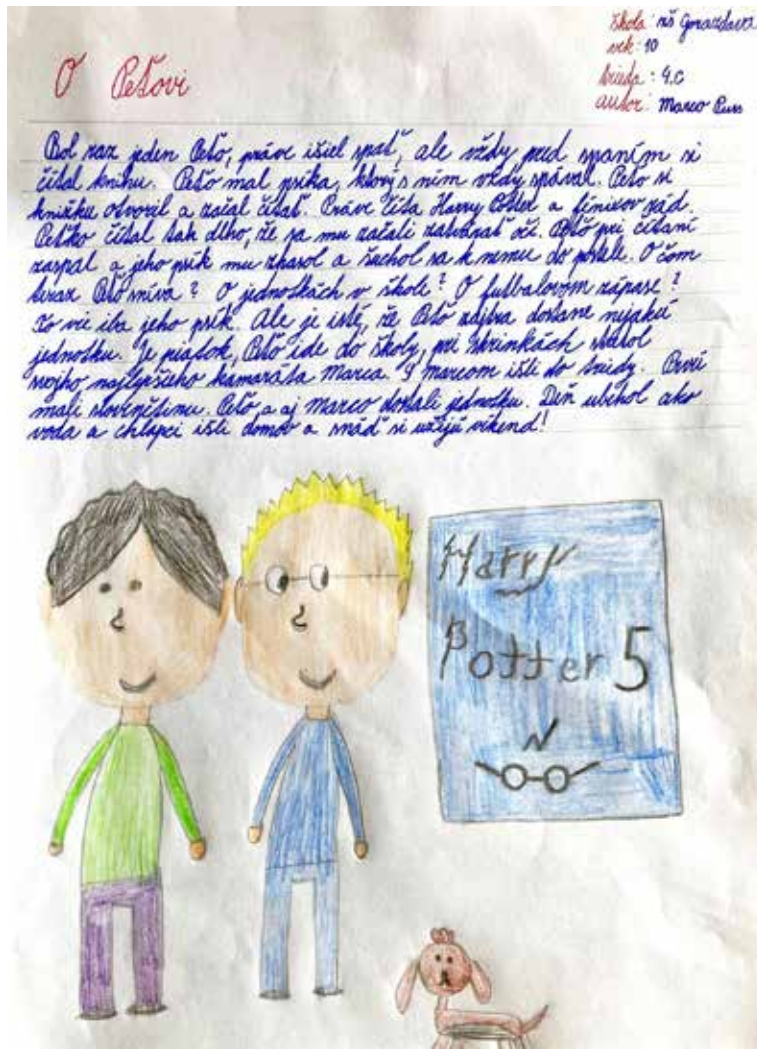 škola: zš Gorazdova
vek: 10
trieda: 4.C
autor: Marco
O Peťovi
Bol raz jeden Peťo, práve išiel spať, ale vždy pred spaním si
čítal knihu. Peťo mal psíka, ktorý s ním vždy spával. Peťo si
knižku otvoril a začal čítať. Práve číta Harry Potter a fénixov rád.
Peťko čítal tak dlho, že sa mu začali zatvárať oči. Peťo pri čítaní
zaspal a jeho psík mu zhasol a šuchol sa k nemu do postele. O čom
teraz Peťo sníva? O jednotkách v škole? O futbalovom zápase?
To vie iba jeho psík. Ale je isté, že Peťo zajtra dostane nijakú
jednotku. Je piatok, Peťo ide do školy, pri skrinkách stretol
svojho najlepšieho kamaráta Marca. S marcom išli do triedy. Prvú
mali slovenčinu. Peťo a aj Marco dostali jednotku. Deň ubehol ako
voda a chlapci išli domov a snáď si užijú víkend!
Harry
Potter 5